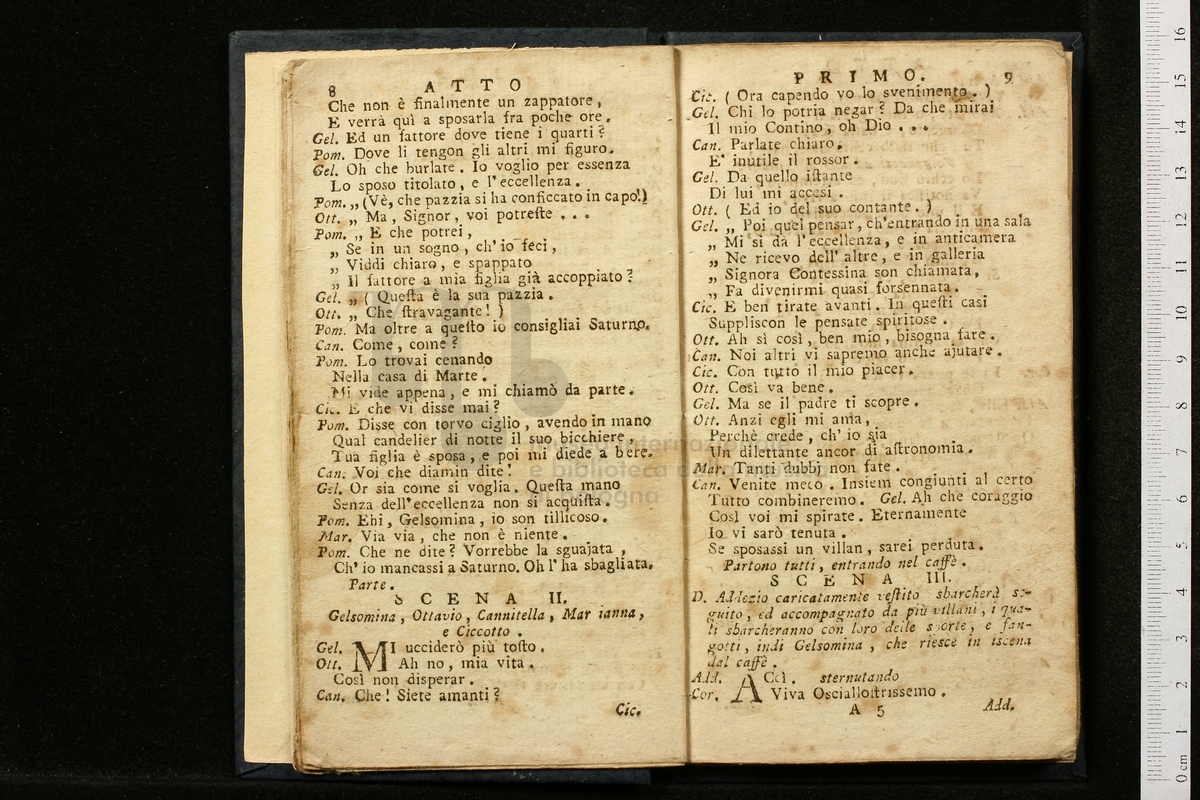 8 ATTO
Che non è finalmente un zappatore,
E verrà quì a sposarla fra poche ore.
Gel. Ed un fattore dove tiene i quarti?
Pom. Dove li tengon gli altri mi figuro.
Gel. Oh che burlate. Io voglio per essenza
Lo sposo titolato, e l'eccellenza.
Pom. „ (Vè, che pazzia si ha conficcato in capo!)
Ott. „ Ma, Signor, voi potreſte . . .
Pom. „ E che potrei,
„ Se in un sogno, ch'io feci,
„ Viddi chiaro, e spappato
„ Il fattore a mia figlia già accoppiato?
Gel. „ ( Queſta è la sua pazzia.
Ott. „ Che ſtravagante! )
Pom. Ma oltre a queſto io consigliai Saturno.
Can. Come, come?
Pom. Lo trovai cenando
Nella casa di Marte.
Mi vide appena, e mi chiamò da parte.
Cic. E che vi disse mai?
Pom. Disse con torvo ciglio, avendo in mano
Qual candelier di notte il suo bicchiere,
Tua figlia è sposa, e poi mi diede a bere.
Can. Voi che diamin dite!
Gel. Or sia come si voglia. Queſta mano
Senza dell'eccellenza non si acquiſta.
Pom. Ehi, Gelsomina, io son tillicoso.
Mar. Via via, che non è niente.
Pom. Che ne dite? Vorrebbe la sguajata,
Ch'io mancassi a Saturno. Oh l'ha sbagliata.
Parte.
SCENA II.
Gelsomina, Ottavio, Cannitella, Marianna,
e Ciccotto.
Gel. MI ucciderò più toſto.
Ott. Ah no, mia vita.
Così non disperar.
Can. Che! Siete amanti?
Cic.
PRIMO. 9
Cic. ( Ora capendo vo lo svenimento. )
Gel. Chi lo potria negar? Da che mirai
Il mio Contino, oh Dio . . .
Can. Parlate chiaro.
E' inutile il rossor.
Gel. Da quello iſtante
Di lui mi accesi.
Ott. ( Ed io del suo contante. )
Gel. „ Poi quel pensar, ch'entrando in una sala
„ Mi si dà l'eccellenza, e in anticamera
„ Ne ricevo dell'altre, e in galleria
„ Signora Contessina son chiamata,
„ Fa divenirmi quasi forsennata.
Cic. E ben tirate avanti. In queſti casi
Suppliscon le pensate spiritose.
Ott. Ah sì così, ben mio, bisogna fare.
Can. Noi altri vi sapremo anche ajutare.
Cic. Con tutto il mio piacer.
Ott. Così va bene.
Gel. Ma se il padre ti scopre.
Ott. Anzi egli mi ama,
Perchè crede, ch'io sia
Un dilettante ancor di aſtronomia.
Mar. Tanti dubbj non fate.
Can. Venite meco. Insiem congiunti al certo
Tutto combineremo. Gel. Ah che coraggio
Così voi mi spirate. Eternamente
Io vi sarò tenuta.
Se sposassi un villan, sarei perduta.
Partono tutti, entrando nel caffè.
SCENA III.
D. Addezio caricatamente veſtito sbarcherà se-
guito, ed accompagnato da più villani, i qua-
li sbarcheranno con loro delle sporte, e fan-
gotti, indi Gelsomina, che riesce in iscena
dal caffè.
Add. ACcì. sternutando
Cor. Viva Osciallоſtrissemo.
A 5 Add.